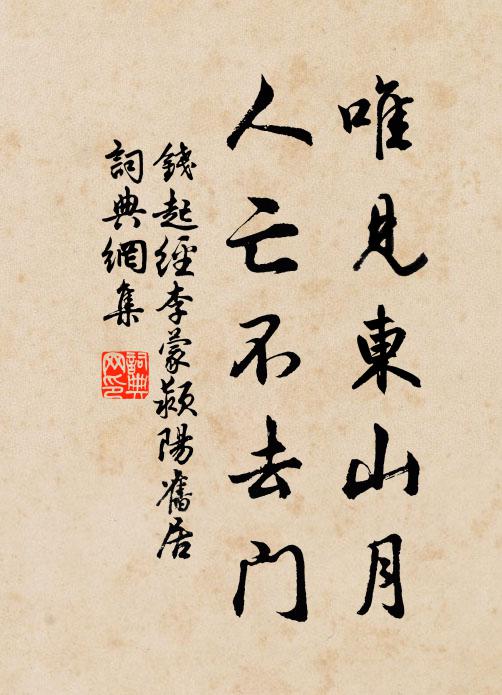 唯見東山月
人亡不去門
錢起經李蒙潁陽舊居
詞典網集
詞典
网印